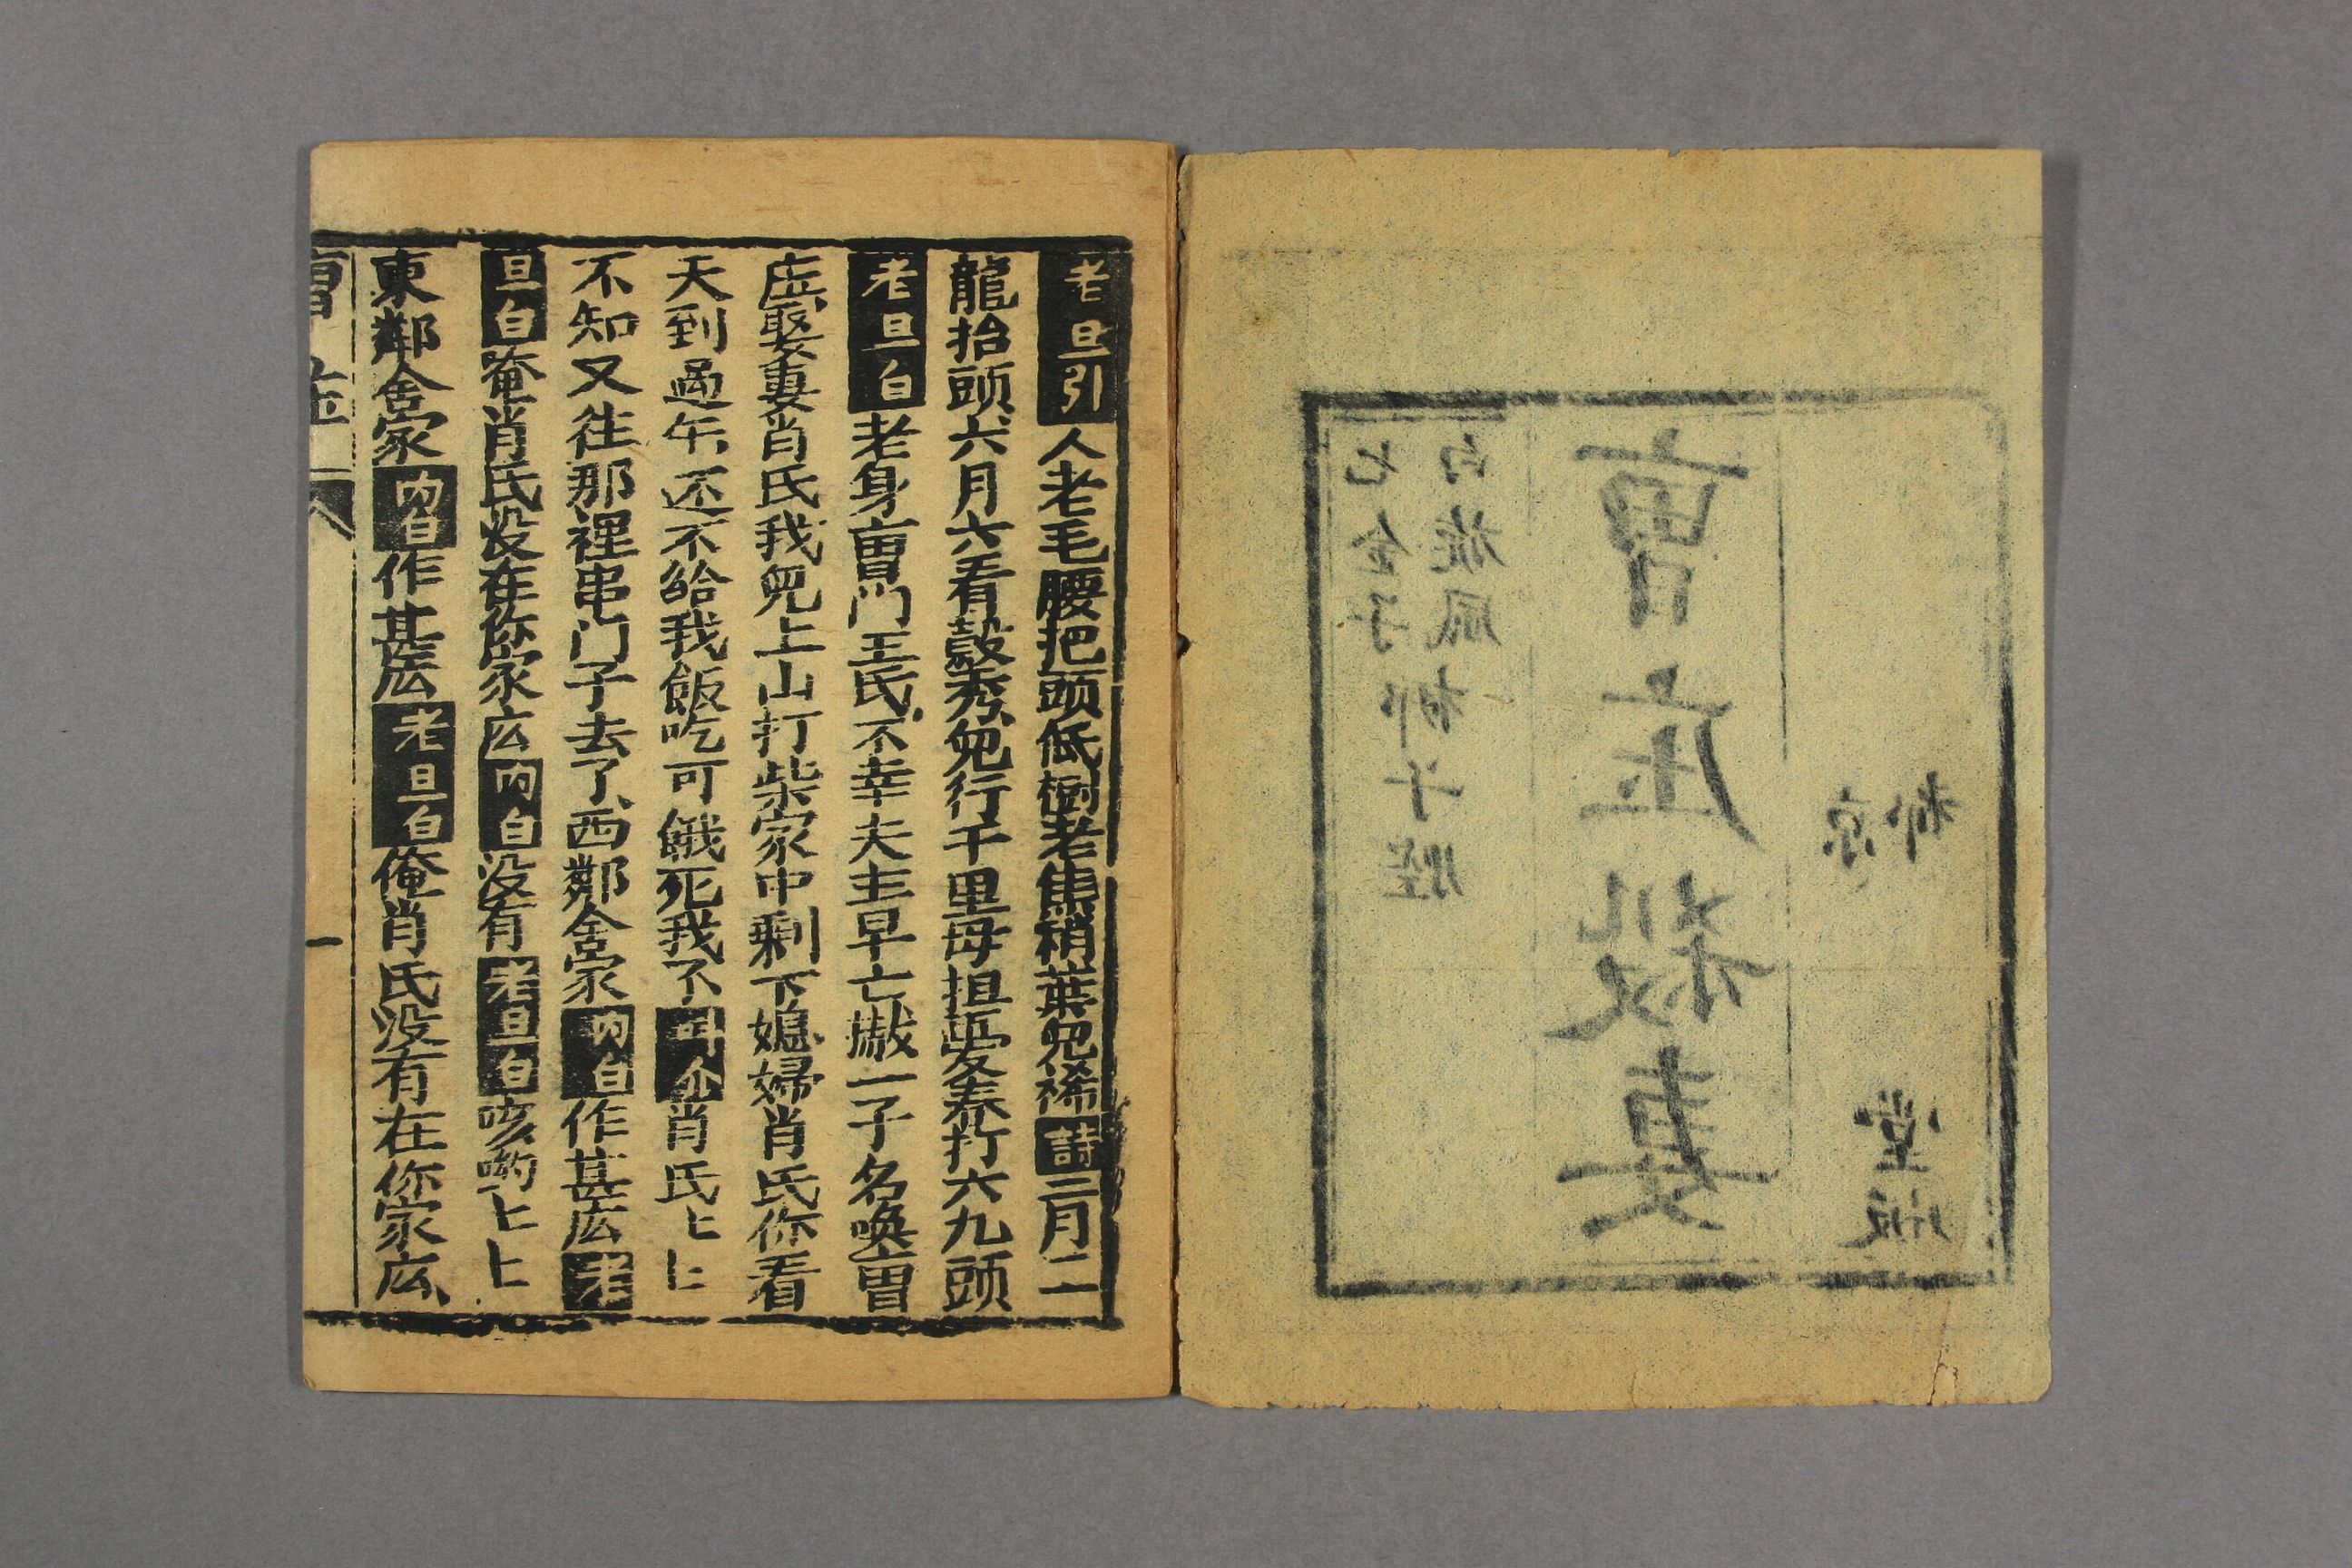 都京
堂版
曺庄殺妻
白旋風柳子腔
七金子
老旦引人老毛腰把頭低樹老焦稍葉兒稀詩二月二
龍抬頭六月六看穀秀兒行千里母担憂春打六九頭
老旦白老身曺门王氏不幸夫主早亡撇一子名喚曺
庄娶妻肖氏我兒上山打柴家中剩下媳婦肖氏你看
天到過午还不給我飯吃可餓死我了肖氏〻〻
不知又往那裡串门子去了西鄰舍家内白作甚広老
旦白俺肖氏没在你家広内白没有老旦白咳喲〻〻
東鄰舍家内白作甚広老旦白俺肖氏没有在你家広
曺庄 一